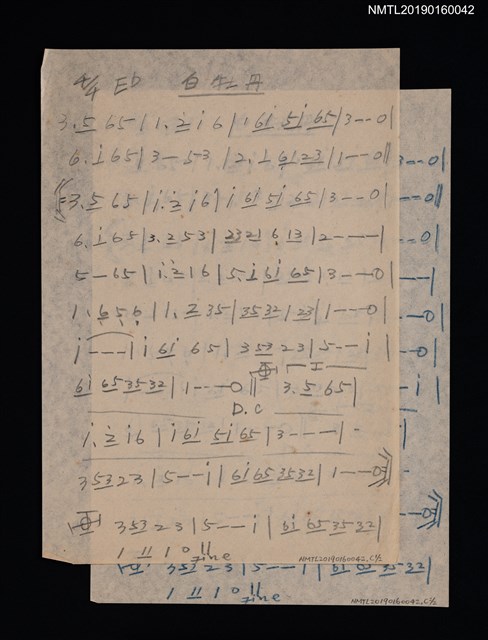 NMTL20190160042
4/4 Eb 白牡丹
3.5 65|1.2 i 6|i 6i 5i 65|3--0|
6.i65|3--53|2.1 6123|1--0‖
3.5 65|i.2 i6|i 6i 5i 65|3--0|
6.i65|3.2 53|2321 6 13|2---|
5-65|i.2 i6|5.i 6i 65|3--0|
1.656|1.2 35|3532 123|1--0|
i---|i 6i 65|3 53 23|5--i|
6i 65 35 32|1--0‖3.5 65|
D.C
i.2 i6|i 6i 5i 65|3---|
3 53 23|5--i|6i 65 35 32|1--0‖
3 53 2 3|5--i|6i 65 35 32|
1 11 1 0‖
fine
NMTL20190160042, C1/2
3 53 2 3|5--i|6i 65 35 32|
1 11 1 0‖
fine
NMTL20190160042, C1/2